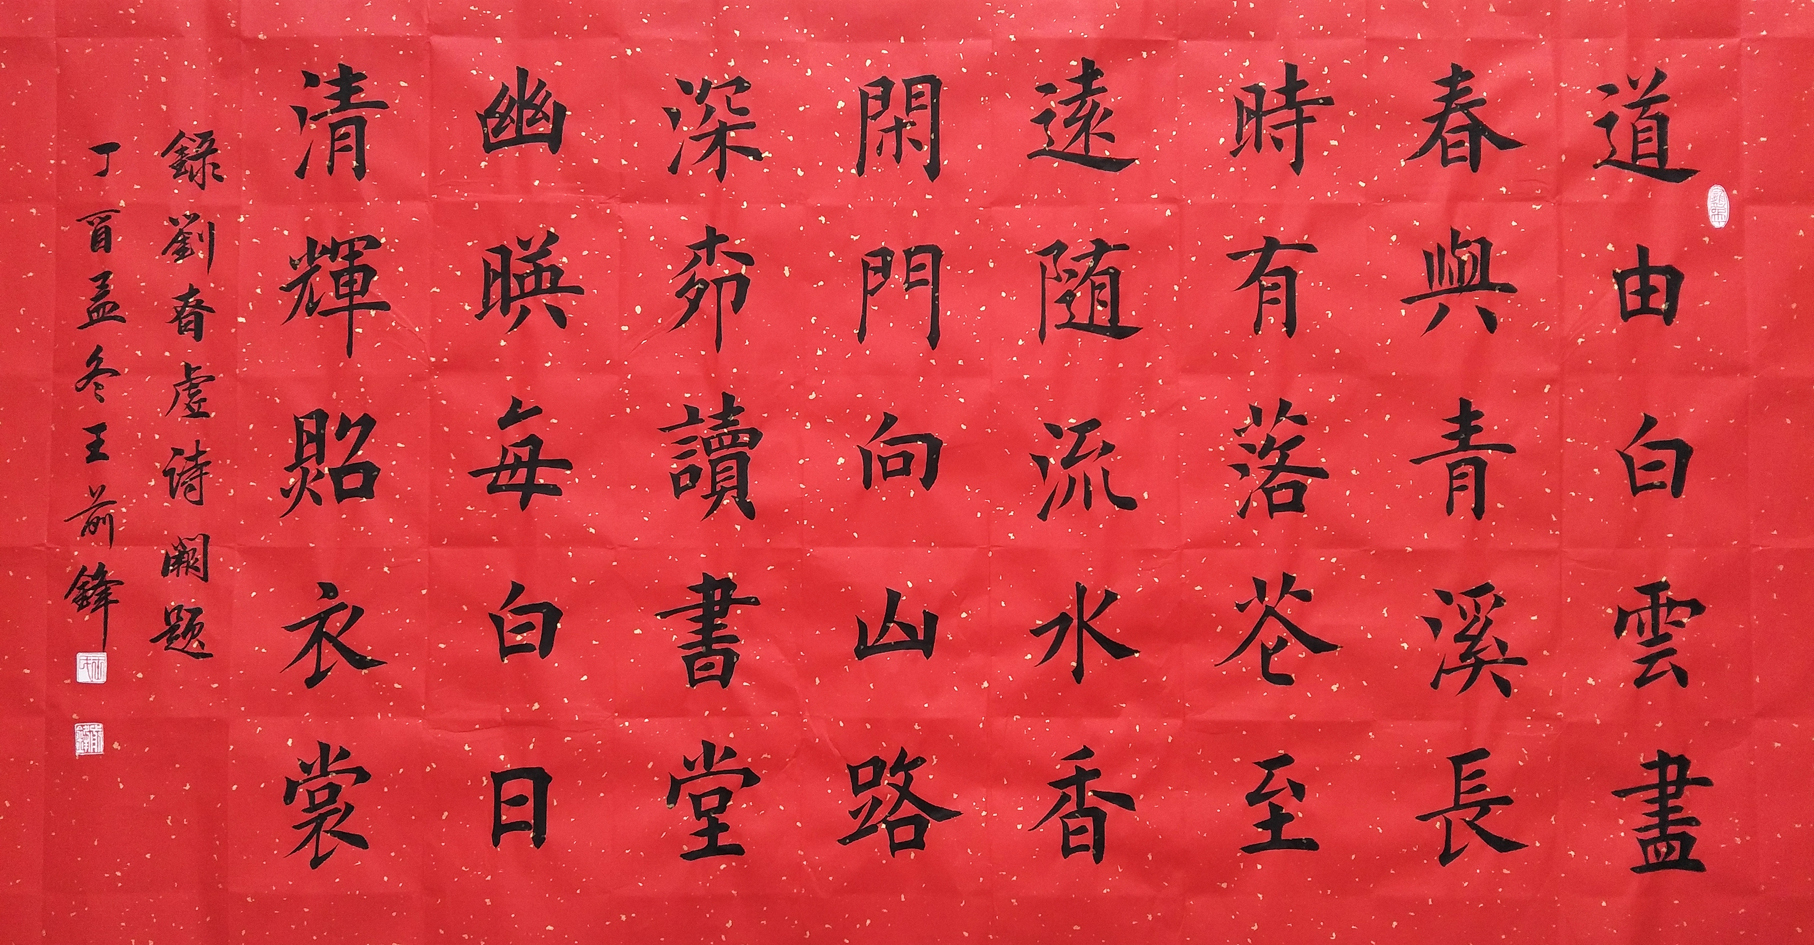 道由白雲盡
春與青溪長
時有落花至
遠随流水香
閑門向山路
深栁讀書堂
幽暎每白日
清輝照衣裳
錄劉眘虛诗闕题
丁酉孟冬王前鋒